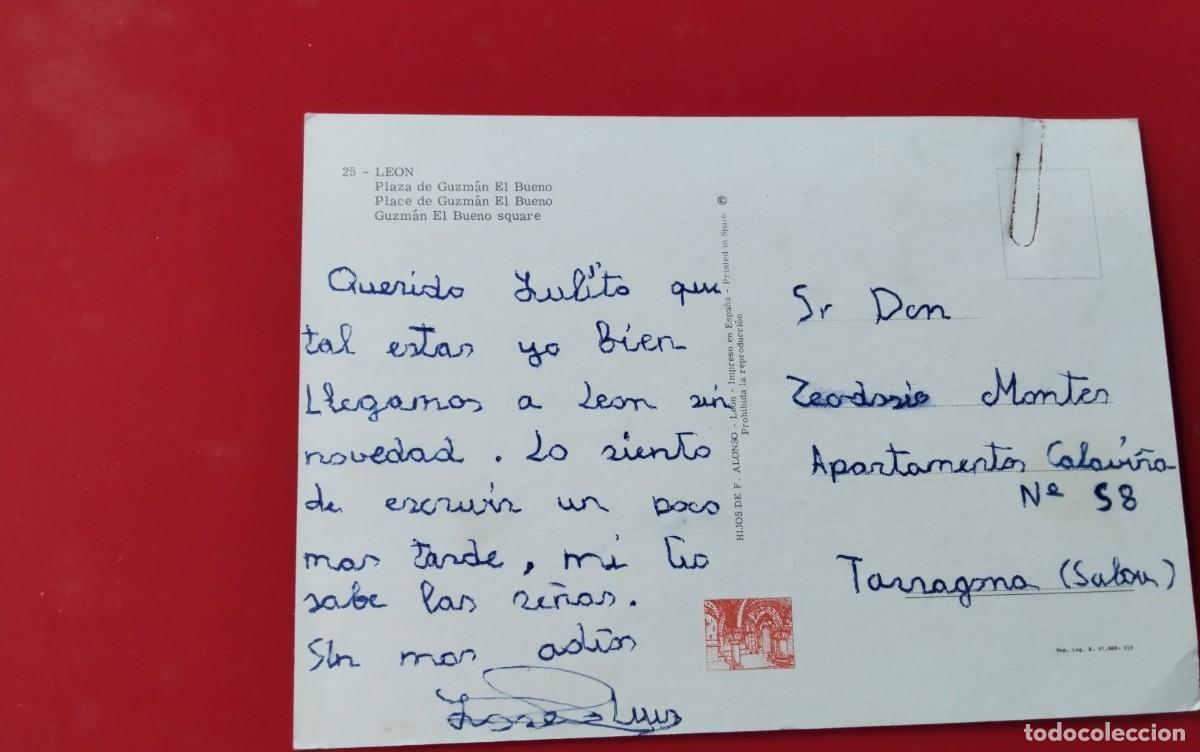 25 - LEON
Plaza de Guzmán El Bueno
Place de Guzmán El Bueno
Guzmán El Bueno square
Querido Julito que
tal estas yo bien
Llegamos a Leon sin
novedad. Lo siento
de escruvir un poco
mas tarde, mi tio
sabe las señas.
Sin mas adios
Jose Luis
HIJOS DE F. ALONSO - León - Impreso en España - Printed in Spain
Prohibida la reproducción
Sr Don
Teodosio Montes
Apartamentos Calaviña
Nº 58
Tarragona (Salou)
todocoleccion